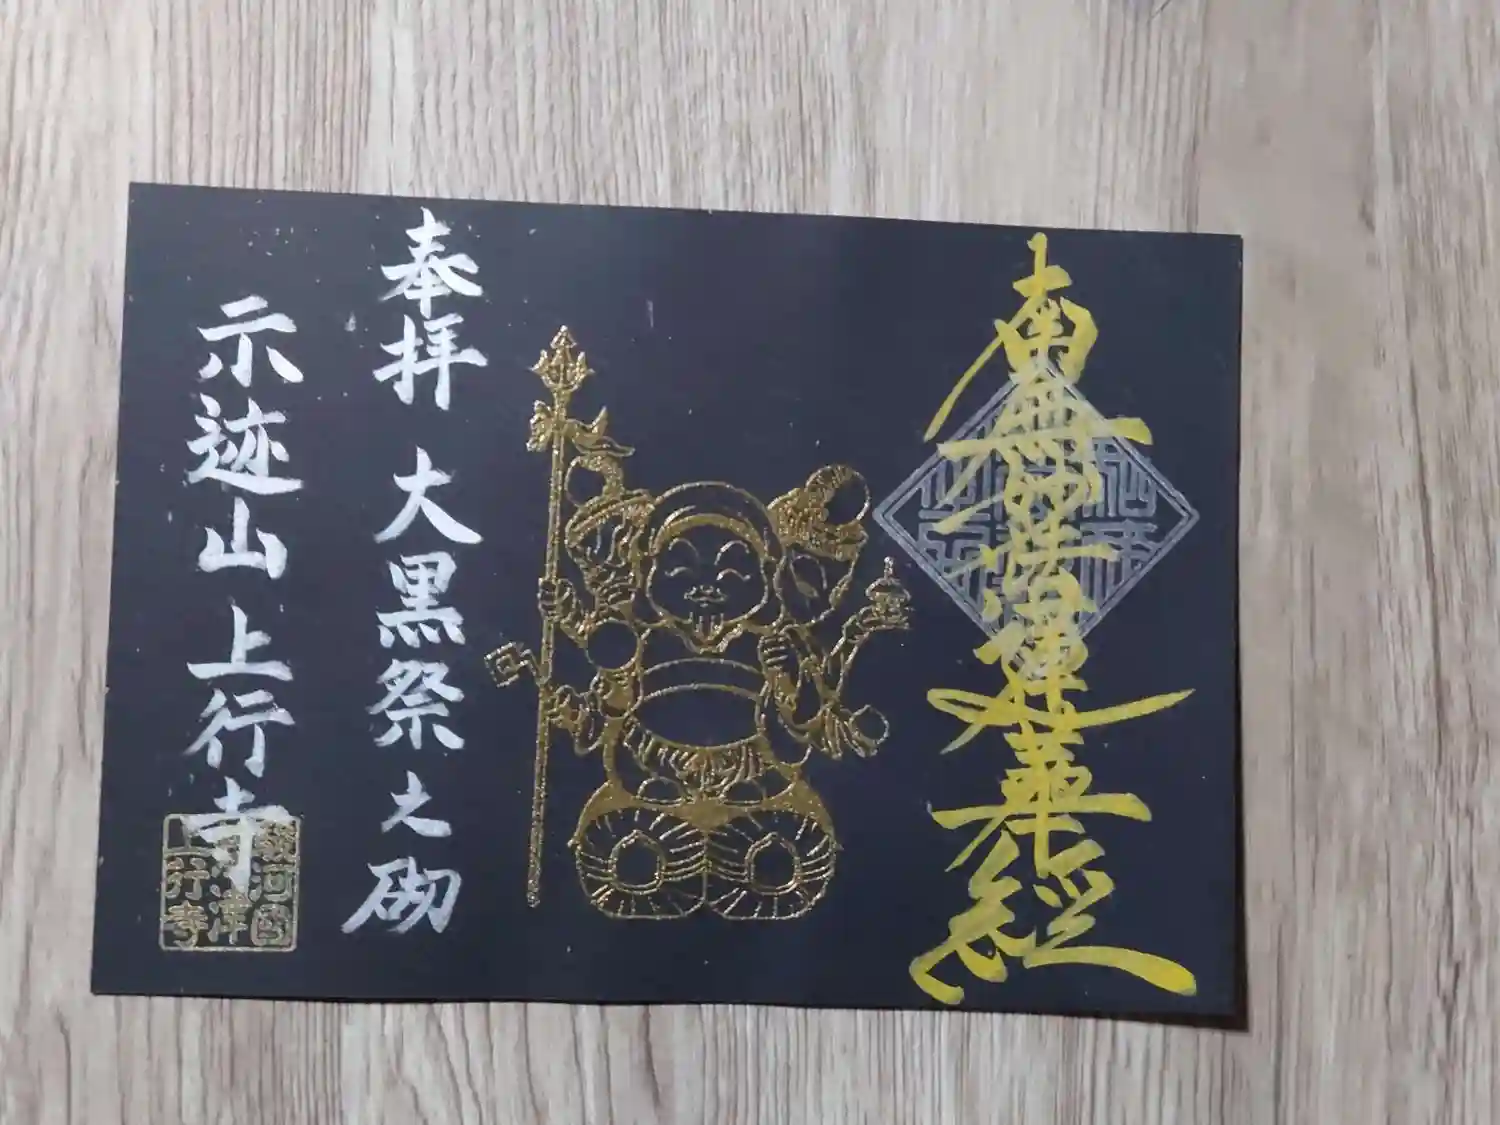 南無妙法蓮華経
奉拝 大黒祭之砌
示迹山上行寺
駿河國
沼津
上行寺